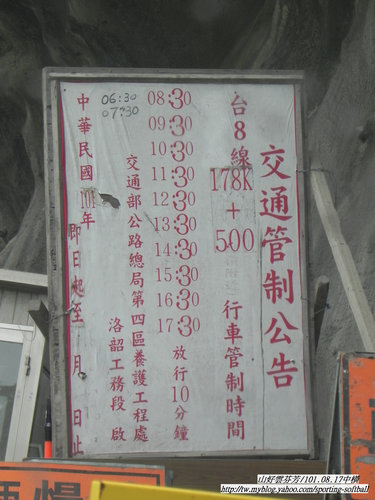 交通管制公告
台8線178K+500行車管制時間
06:30
07:30
08:30
09:30
10:30
11:30
12:30
13:30
14:30
15:30
16:30
17:30
放行10分鐘
交通部公路總局第四區養護工程處
洛韶工務段 啟
中華民國101年
即日起至 月 日止
山好雲芬芳/101.08.17中橫
http://tw.myblog.yahoo.com/sporting-softball